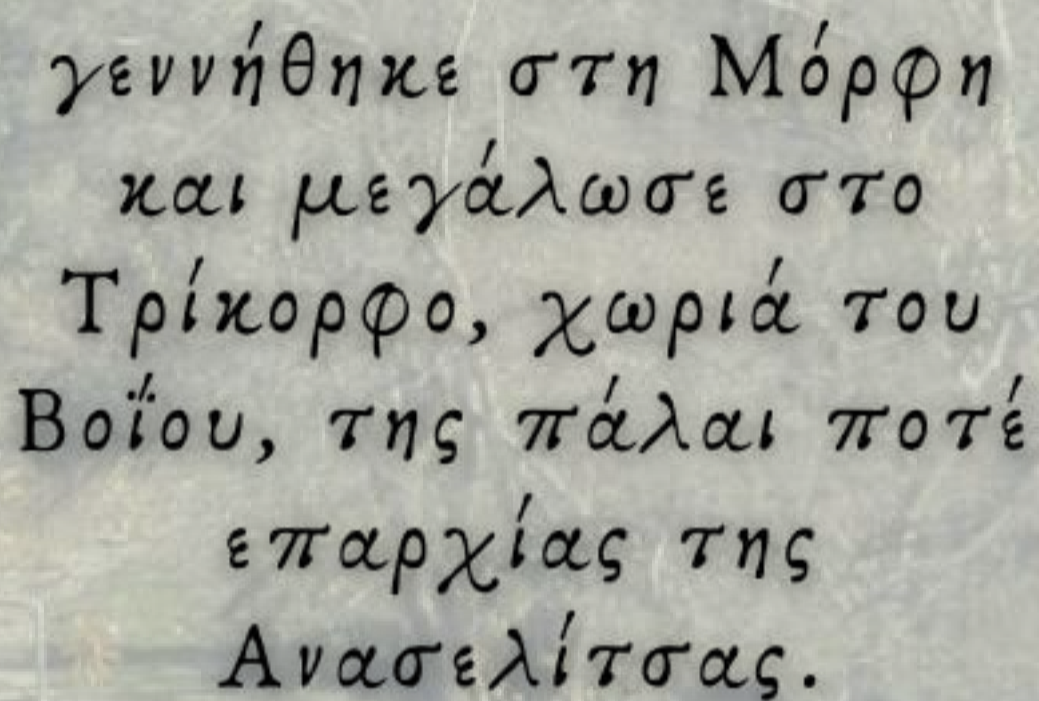 γεννήθηκε στη Μόρφη
και μεγάλωσε στο
Τρίκορφο, χωριά του
Βοΐου, της πάλαι ποτέ
επαρχίας της
Ανασελίτσας.